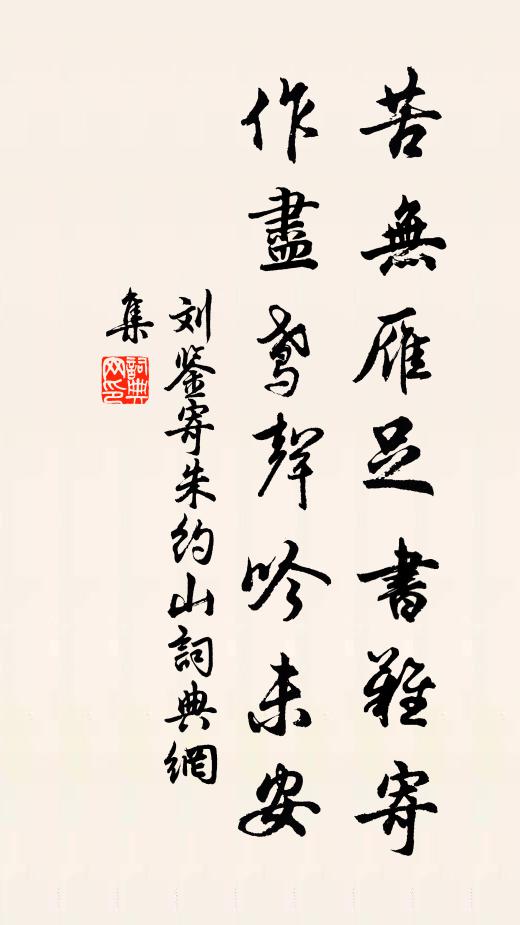 苦無雁足書難寄
作盡鸢聲吟未安
刘鉴寄朱约山詞典網
集
詞典网印